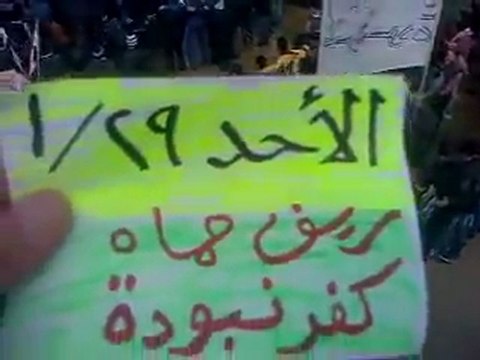 الأحد ٢٩/١
ريف حماه
كفرنبودة